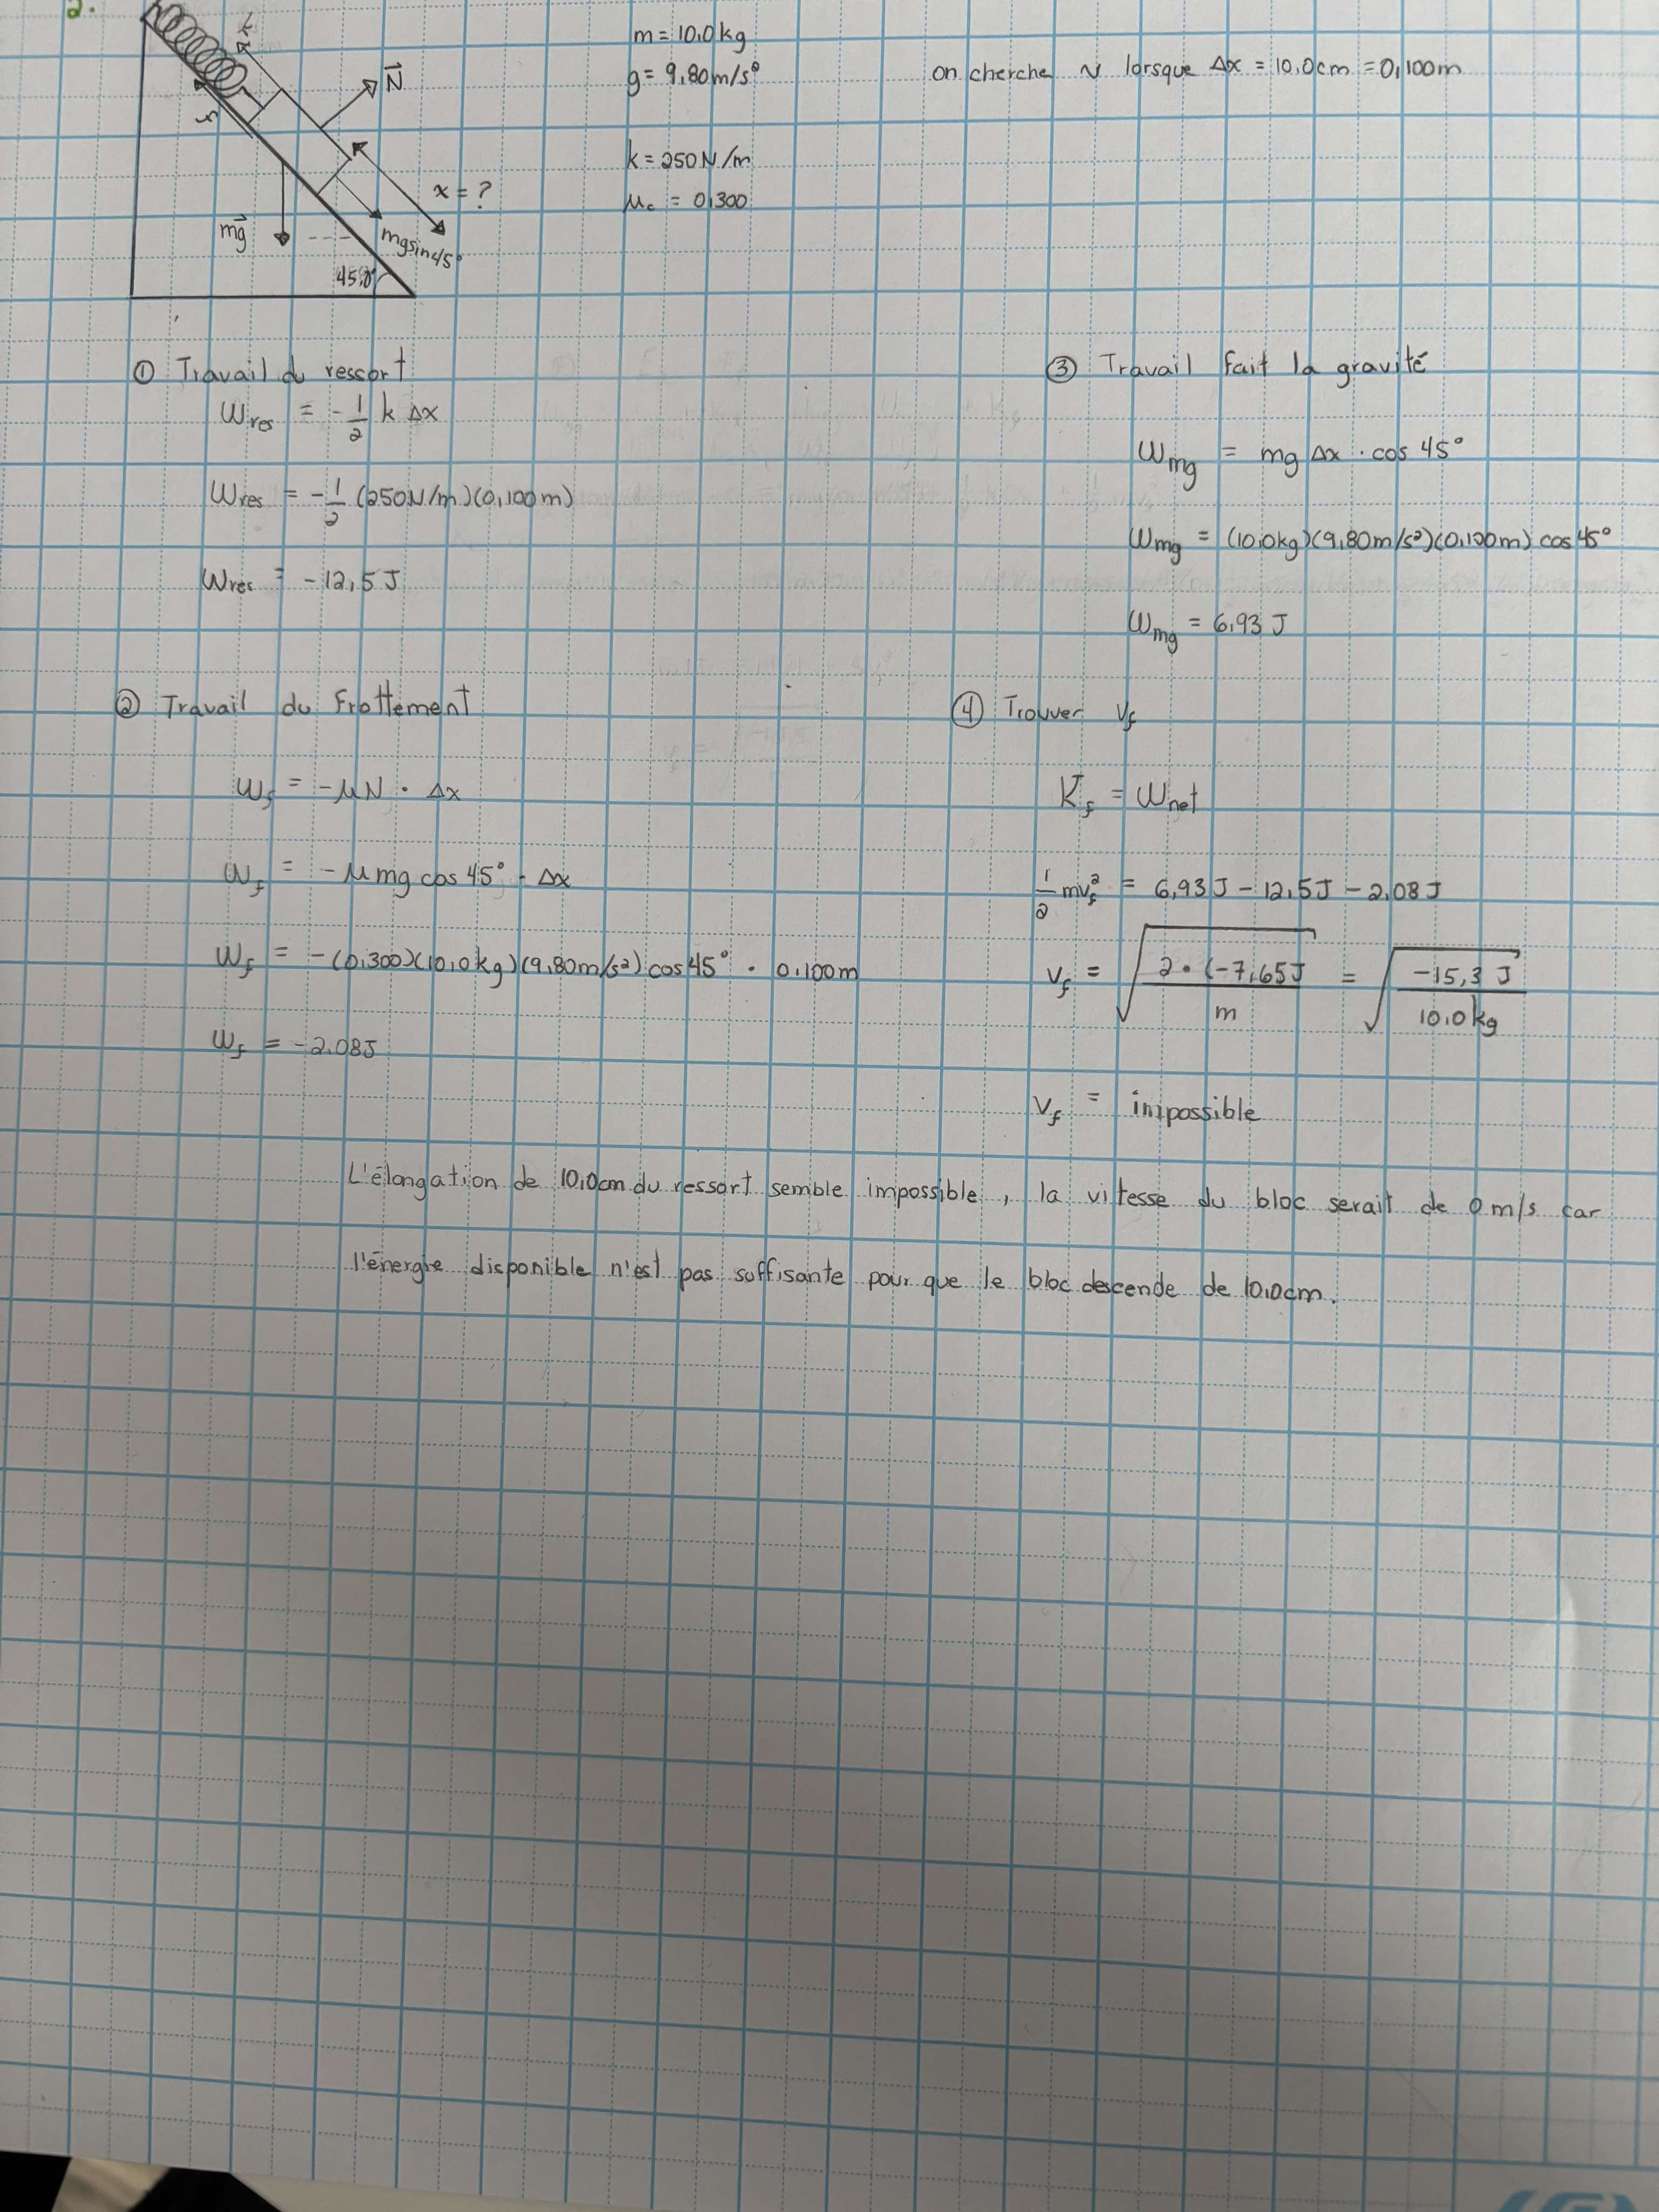 2.
kx
N
f
x = ?
mg
mgsin45°
45,0°
m = 10,0 kg
g = 9,80 m/s²
k = 250 N/m
μc = 0,300
on cherche v lorsque Δx = 10,0 cm = 0,100 m
① Travail du ressort
Wres = -1/2 k Δx
Wres = -1/2 (250 N/m)(0,100 m)
Wres = -12,5 J
② Travail du frottement
Wf = -μN · Δx
Wf = -μmg cos 45° · Δx
Wf = -(0,300)(10,0 kg)(9,80 m/s²) cos 45° · 0,100 m
Wf = -2,08 J
③ Travail fait la gravité
Wmg = mg Δx · cos 45°
Wmg = (10,0 kg)(9,80 m/s²)(0,100 m) cos 45°
Wmg = 6,93 J
④ Trouver vf
Kf = Wnet
1/2 mvf² = 6,93 J - 12,5 J - 2,08 J
vf = √(2 · (-7,65 J / m) = √(-15,3 J / 10,0 kg)
vf = impossible
L'élongation de 10,0 cm du ressort semble impossible, la vitesse du bloc serait de 0 m/s car
l'énergie disponible n'est pas suffisante pour que le bloc descende de 10,0 cm.